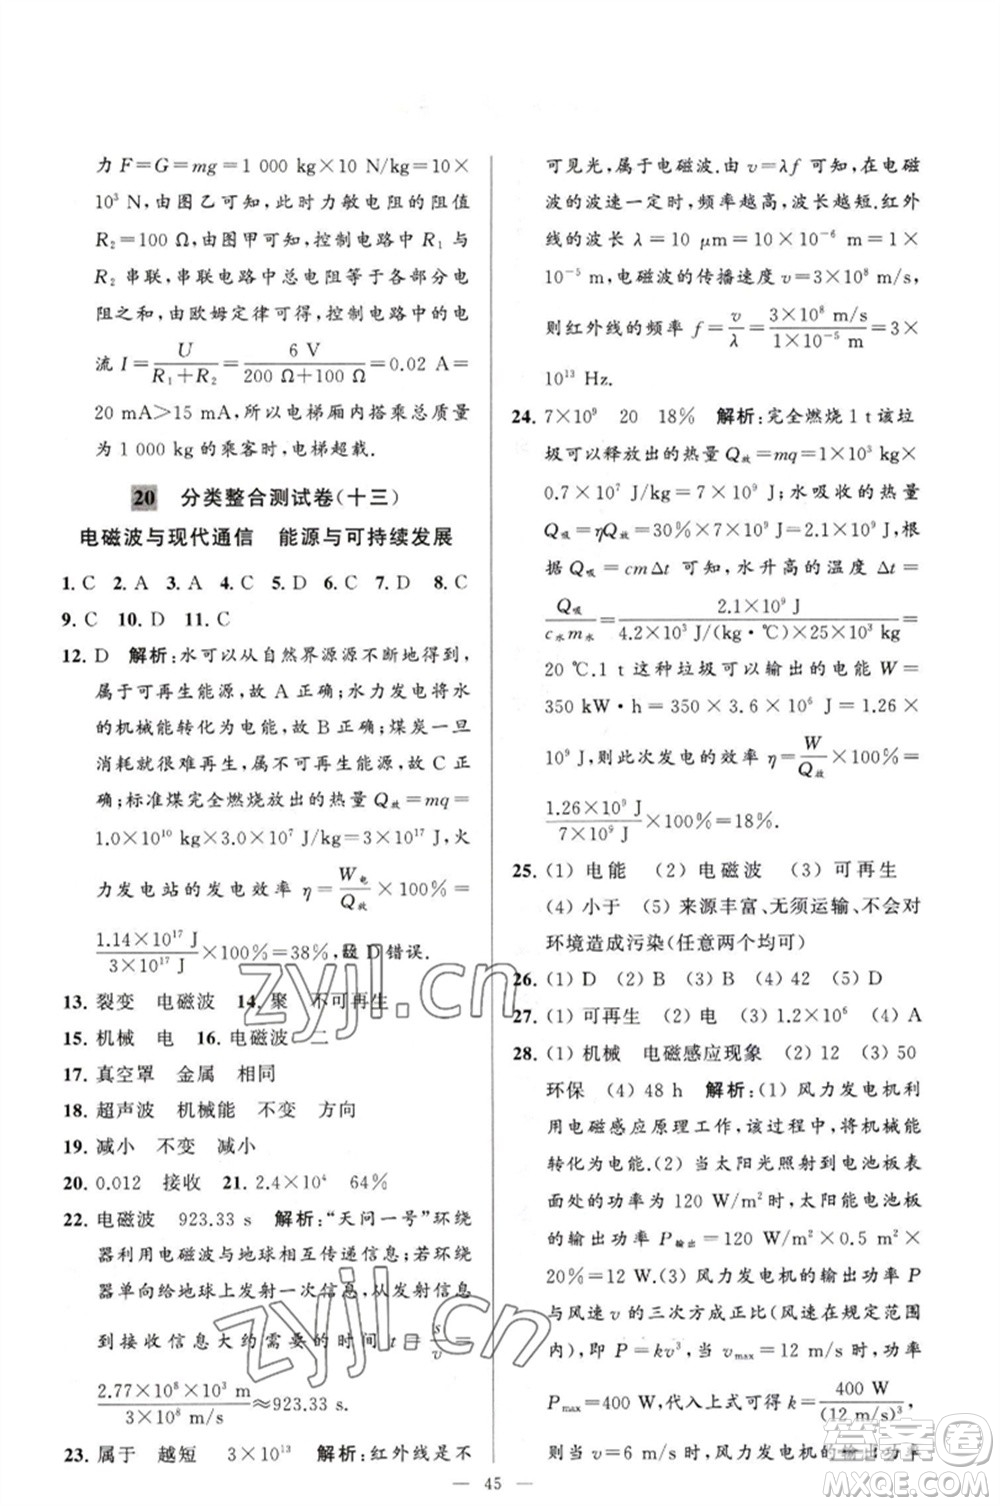 力 F=G=mg=1 000 kg×10 N/kg=10×
10³ N，由图乙可知，此时力敏电阻的阻值
R₂=100 Ω，由图甲可知，控制电路中 R₁ 与
R₂ 串联，串联电路中总电阻等于各部分电
阻之和，由欧姆定律可得，控制电路中的电
流 I=U/(R₁+R₂)=6 V/(200 Ω+100 Ω)=0.02 A=
20 mA>15 mA，所以电梯厢内搭乘总质量
为 1 000 kg 的乘客时，电梯超载.
20 分类整合测试卷（十三）
电磁波与现代通信 能源与可持续发展
1. C 2. A 3. A 4. C 5. D 6. C 7. D 8. C
9. C 10. D 11. C
12. D 解析：水可以从自然界源源不断地得到，
属于可再生能源，故 A 正确；水力发电将水
的机械能转化为电能，故 B 正确；煤炭一旦
消耗就很难再生，属不可再生能源，故 C 正
确；标准煤完全燃烧放出的热量 Q放=mq=
1.0×10¹⁰ kg×3.0×10⁷ J/kg=3×10¹⁷ J，火
力发电站的发电效率 η=W电/Q放×100%=
1.14×10¹⁷ J/3×10¹⁷ J×100%=38%，故 D 错误.
13. 裂变 电磁波 14. 聚 不可再生
15. 机械 电 16. 电磁波 二
17. 真空罩 金属 相同
18. 超声波 机械能 不变 方向
19. 减小 不变 减小
20. 0.012 接收 21. 2.4×10⁴ 64%
22. 电磁波 923.33 s 解析：“天问一号”环绕
器利用电磁波与地球相互传递信息；若环绕
器单向给地球上发射一次信息，从发射信息
到接收信息大约需要的时间 t=s/v=
2.77×10⁸×10³ m/3×10⁸ m/s≈923.33 s.
23. 属于 越短 3×10¹³ 解析：红外线是不
可见光，属于电磁波.由 v=λf 可知，在电磁
波的波速一定时，频率越高，波长越短.红外
线的波长 λ=10 μm=10×10⁻⁶ m=1×
10⁻⁵ m，电磁波的传播速度 v=3×10⁸ m/s，
则红外线的频率 f=v/λ=3×10⁸ m/s/1×10⁻⁵ m=3×
10¹³ Hz.
24. 7×10⁹ 20 18% 解析：完全燃烧 1 t 该垃
圾可以释放出的热量 Q放=mq=1 000 kg×
7×10⁶ J/kg=7×10⁹ J；水吸收的热量
Q吸=ηQ放=30%×7×10⁹ J=2.1×10⁹ J，根
据 Q吸=cmΔt 可知，水升高的温度 Δt=
Q吸/c水m水=2.1×10⁹ J/4.2×10³ J/(kg·℃)×25×10³ kg=
20 ℃.1 t 这种垃圾可以输出的电能 W=
350 kW·h=350×3.6×10⁶ J=1.26×
10⁹ J，则此次发电的效率 η=W/Q放×100%=
1.26×10⁹ J/7×10⁹ J×100%=18%.
25. (1) 电能 (2) 电磁波 (3) 可再生
(4) 小于 (5) 来源丰富、无须运输、不会对
环境造成污染（任意两个均可）
26. (1) D (2) B (3) B (4) 42 (5) D
27. (1) 可再生 (2) 电 (3) 1.2×10⁶ (4) A
28. (1) 机械 电磁感应现象 (2) 12 (3) 50
环保 (4) 48 h 解析：(1) 风力发电机利
用电磁感应原理工作，该过程中，将机械能
转化为电能.(2) 当太阳光照射到电池板表
面处的功率为 120 W/m² 时，太阳能电池板
的输出功率 P输出=120 W/m²×0.5 m²×
20%=12 W.(3) 风力发电机的输出功率 P
与风速 v 的三次方成正比（风速在规定范围
内），即 P=kv³，当 vmax=12 m/s 时，功率
Pmax=400 W，代入上式可得 k=400 W/(12 m/s)³，
则当 v=6 m/s 时，风力发电机的输出功率
— 45 —
zyjl.cn
zyjl.cn
答案圈
MXQE.COM